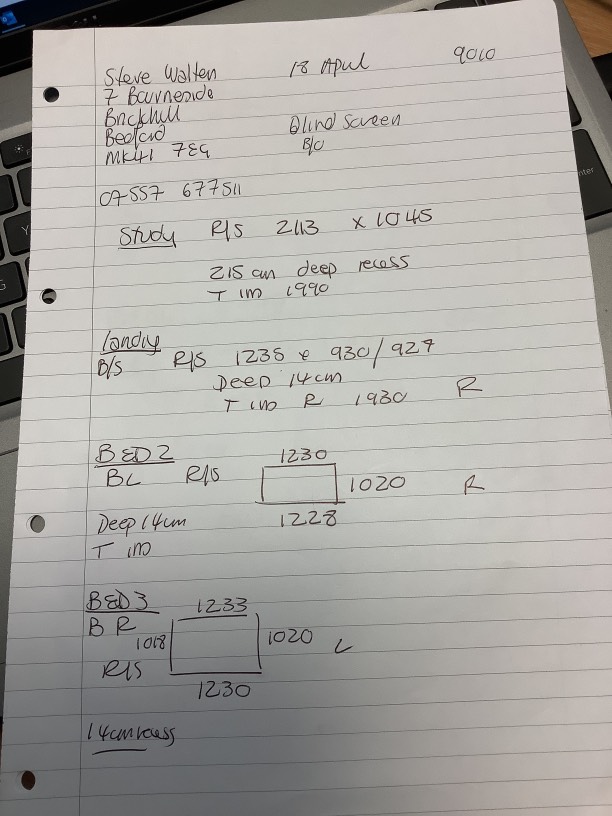 Steve Walten
18 April
9010
7 Bourneside
Brickhill
Bedford
Blind Screen
MK41 7EG
B/O
07557 677511
Study R/S 2113 x 1045
215 cm deep recess
T im 1990
Landig
B/S R/S 1238 x 930/927
Deep 14cm
T im R 1930 R
BED 2
1230
BL R/S
1020 R
Deep 14cm
1228
T im
BED 3
1233
B R
1018
1020 L
R/S
1230
14cm recess